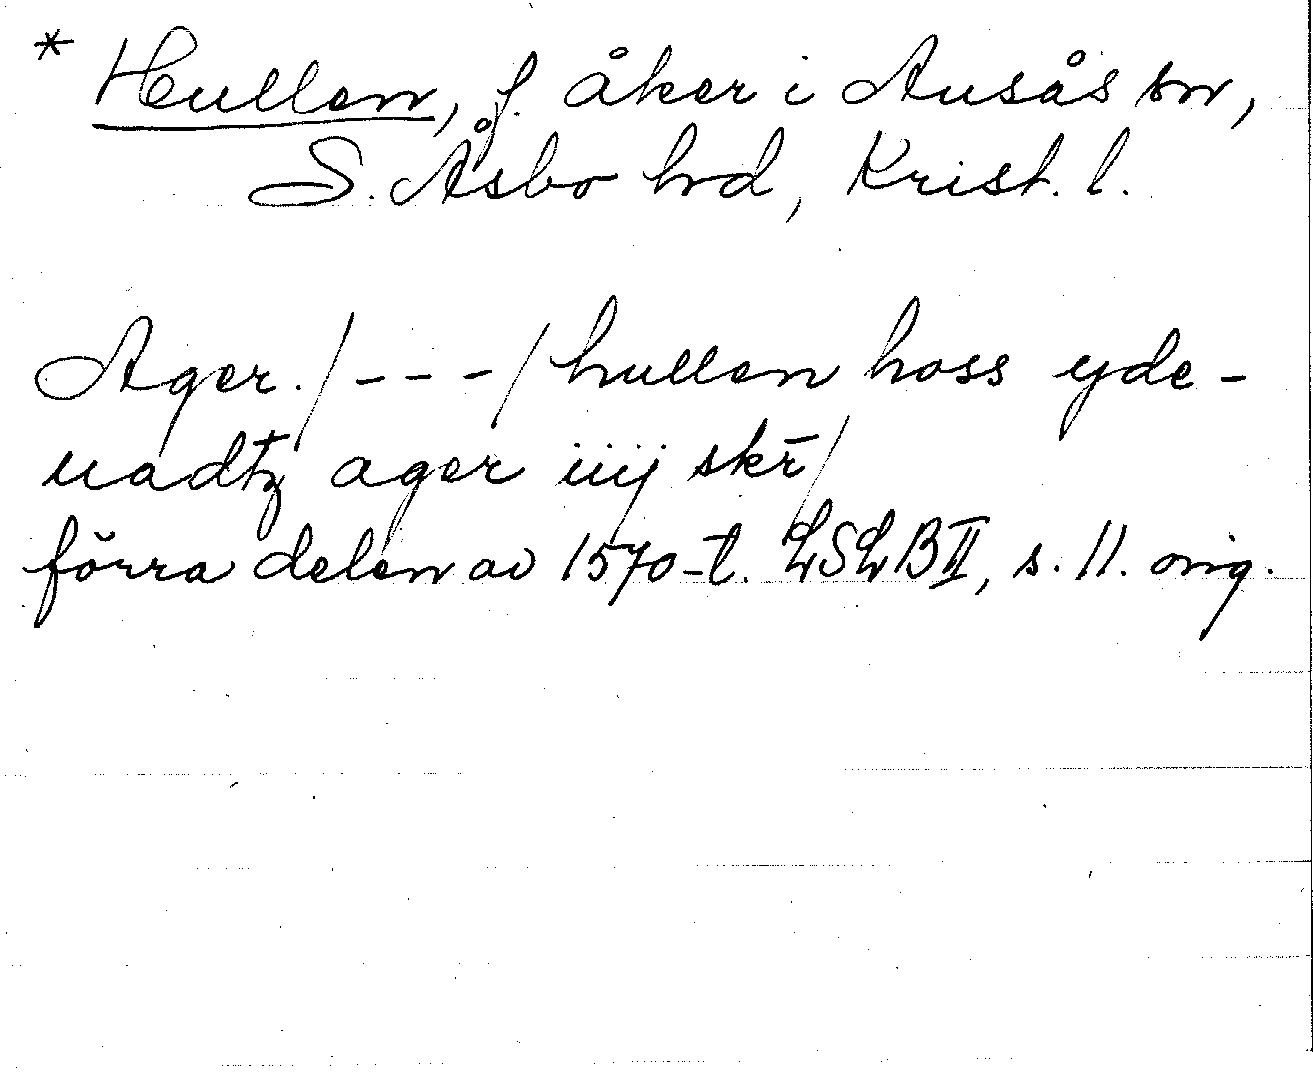 * Hullen, f. åker i Ausås sn,
S. Åsbo hd, Krist. l.
Ager./---/hullen hoss yde-
uadtz ager iiij skr̄/
förra delen av 1570-t. LSLB II, s. 11. orig.